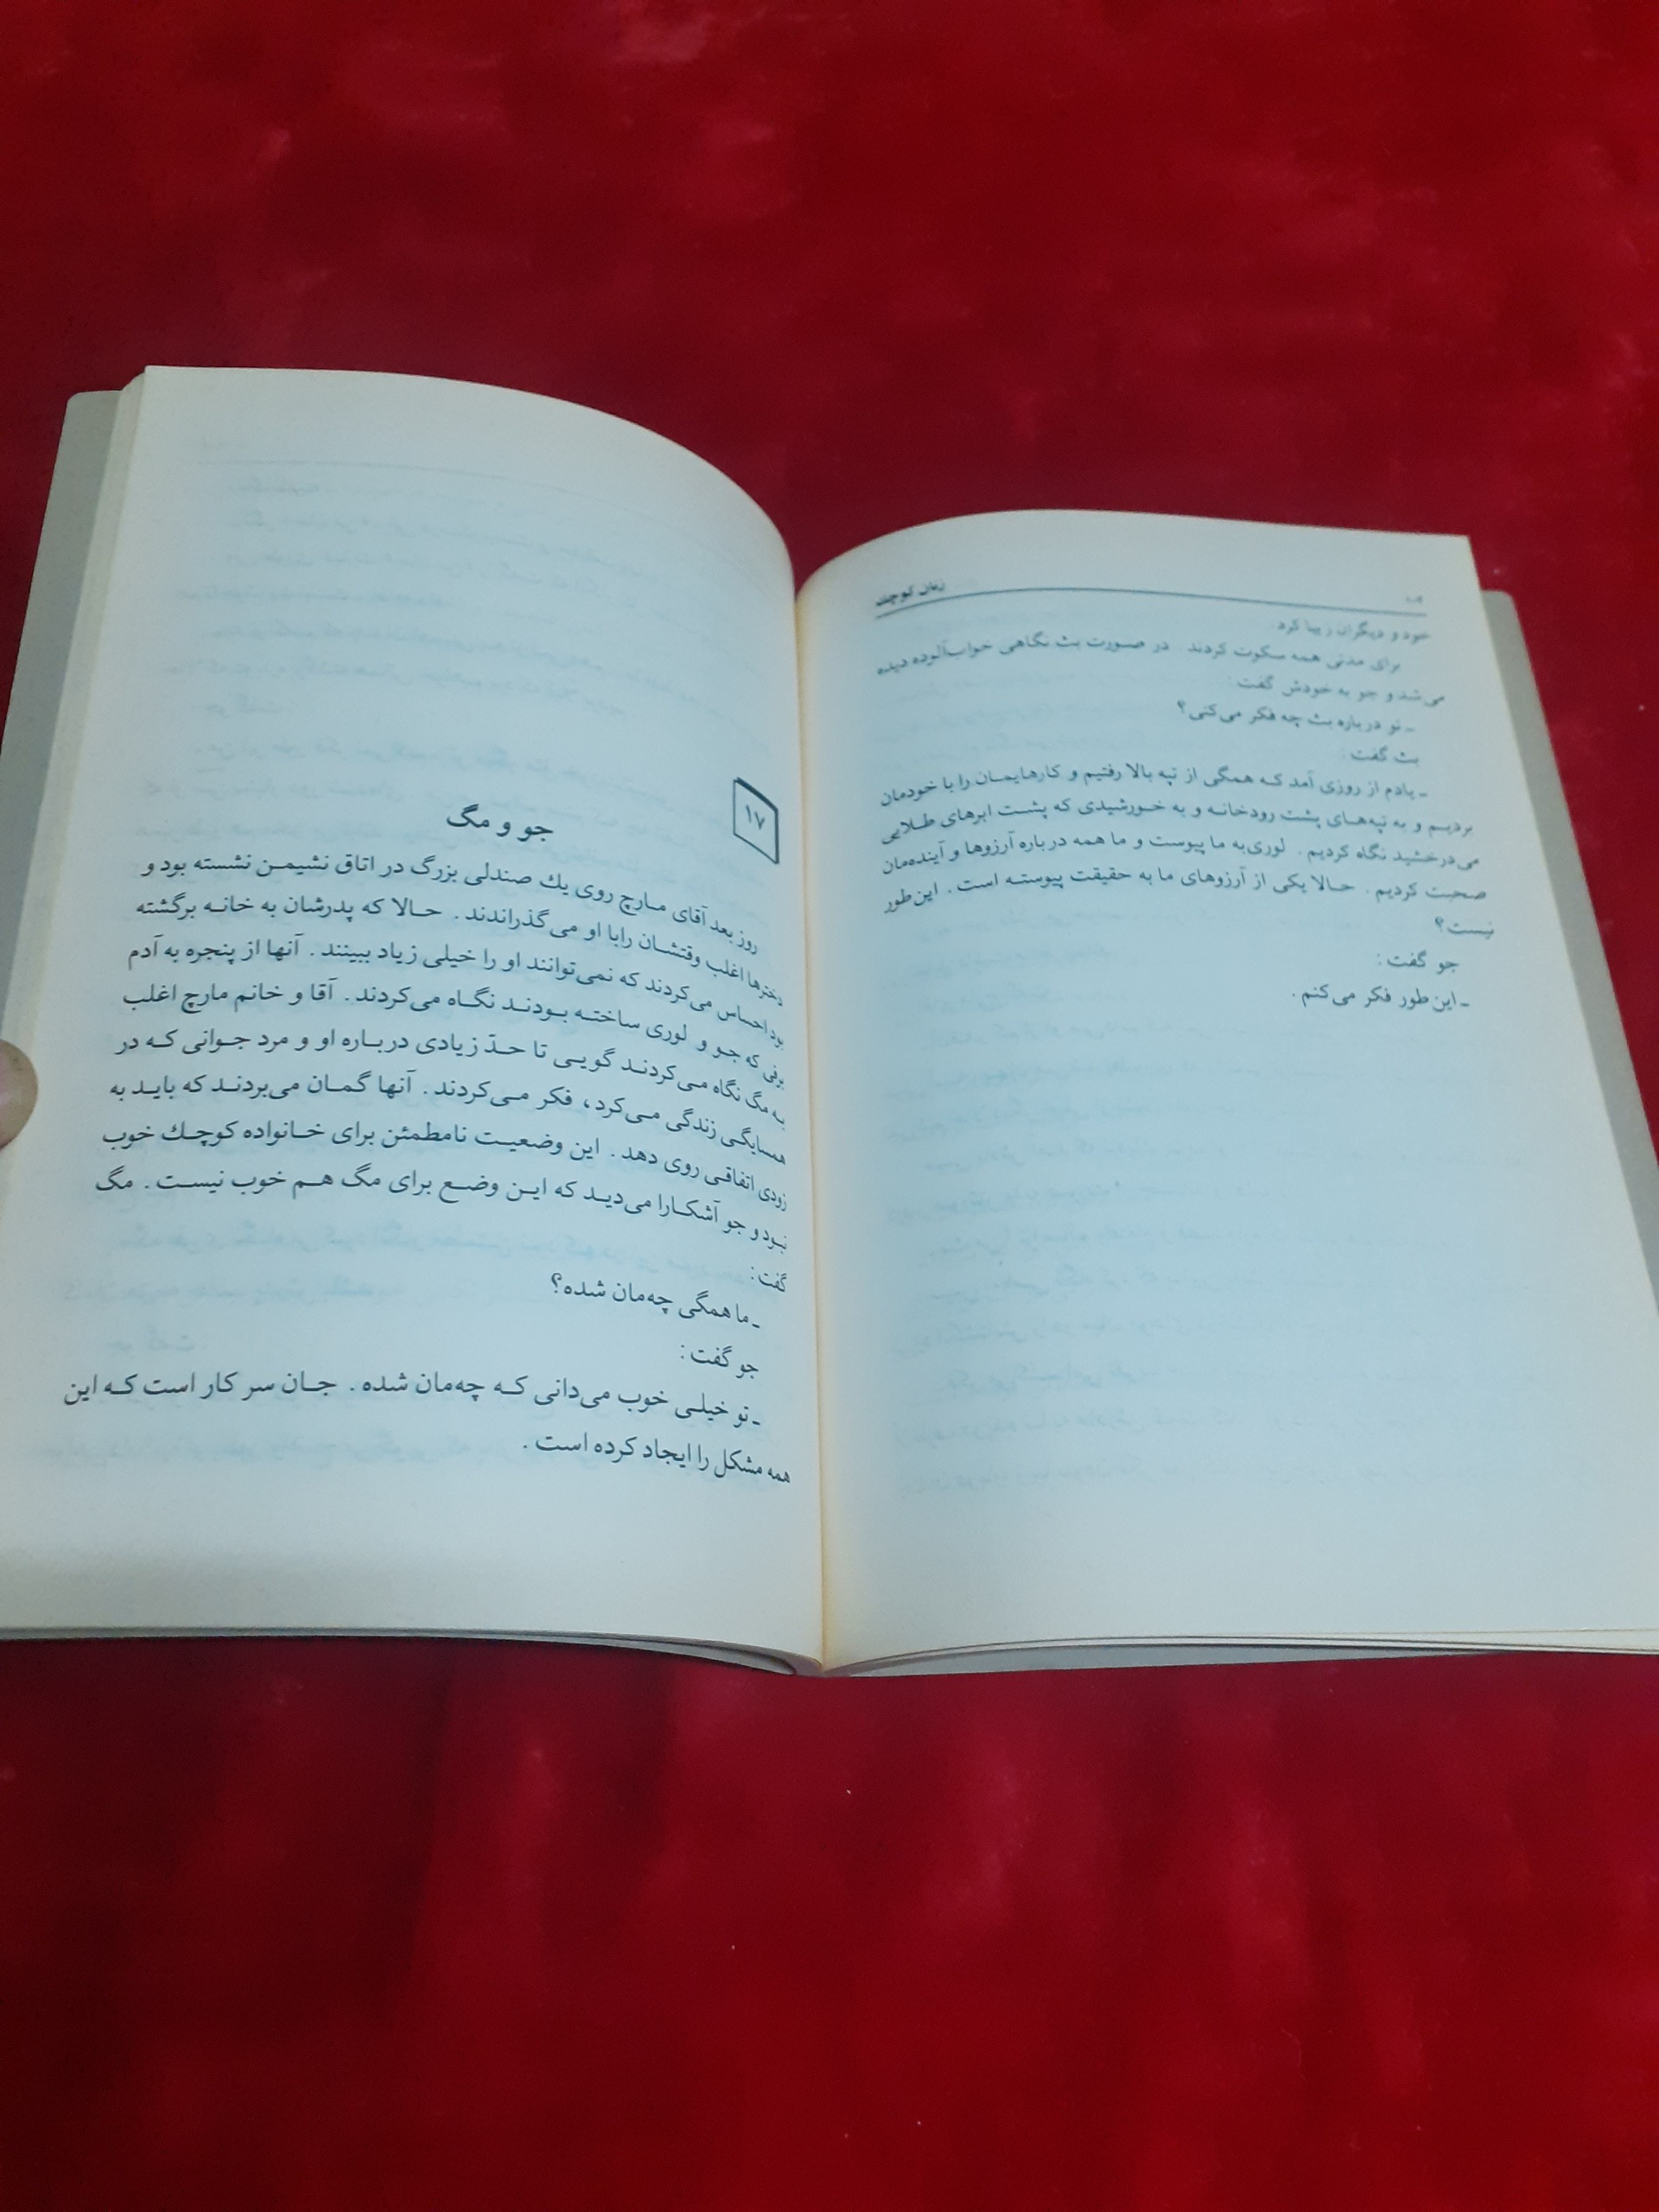 زنان کوچک
خود و دیگران زیبا کرد.
برای مدتی همه سکوت کردند. در صورت بث نگاهی خواب‌آلوده دیده
می‌شد و جو به خودش گفت:
ـ تو درباره بث چه فکر می‌کنی؟
بث گفت:
ـ یادم از روزی آمد که همگی از تپه بالا رفتیم و کارهایمان را با خودمان
بردیم و به تپه‌های پشت رودخانه و به خورشیدی که پشت ابرهای طلایی
می‌درخشید نگاه کردیم. لوری به ما پیوست و ما همه درباره آرزوها و آینده‌مان
صحبت کردیم. حالا یکی از آرزوهای ما به حقیقت پیوسته است. این‌طور
نیست؟
جو گفت:
ـ این‌طور فکر می‌کنم.
۱۷
جو و مگ
روز بعد آقای مارچ روی یك صندلی بزرگ در اتاق نشیمن نشسته بود و
دخترها اغلب وقتشان را با او می‌گذراندند. حالا که پدرشان به خانه برگشته
بود احساس می‌کردند که نمی‌توانند او را خیلی زیاد ببینند. آنها از پنجره به آدم
برفی که جو و لوری ساخته بودند نگاه می‌کردند. آقا و خانم مارچ اغلب
به مگ نگاه می‌کردند گویی تا حدّ زیادی درباره او و مرد جوانی که در
همسایگی زندگی می‌کرد، فکر می‌کردند. آنها گمان می‌بردند که باید به
زودی اتفاقی روی دهد. این وضعیت نامطمئن برای خانواده کوچك خوب
نبود و جو آشکارا می‌دید که این وضع برای مگ هم خوب نیست. مگ
گفت:
ـ ما همگی چه‌مان شده؟
جو گفت:
ـ تو خیلی خوب می‌دانی که چه‌مان شده. جان سر کار است که این
همه مشکل را ایجاد کرده است.